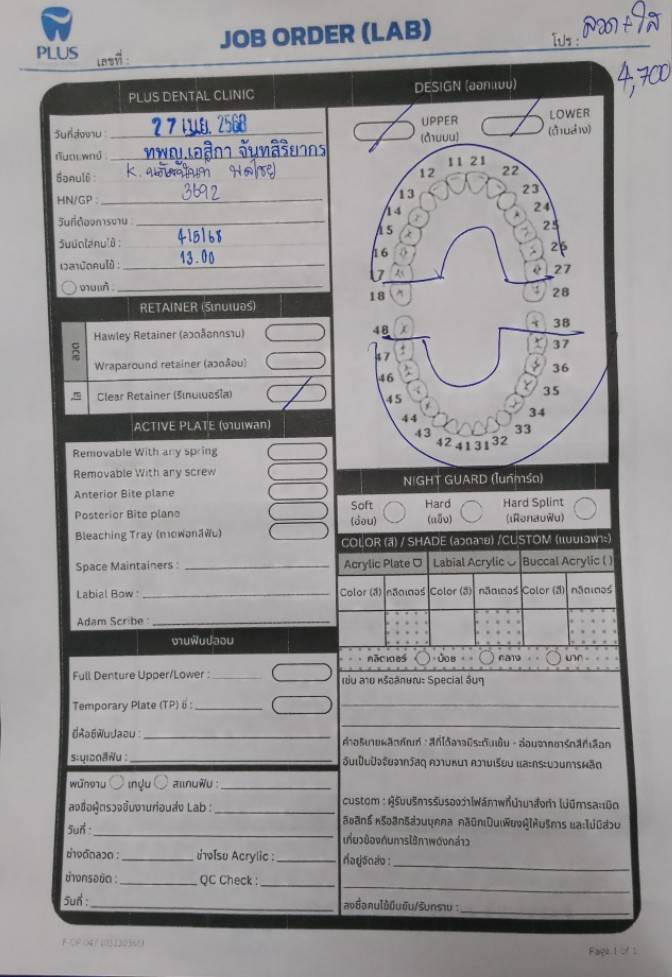 PLUS
JOB ORDER (LAB)
เลขที่ :
โปร : ลวด + ใส
4,700
PLUS DENTAL CLINIC
วันที่ส่งงาน : 27 เม.ย. 2568
ทันตแพทย์ : ทพญ.เอสิกา จันทสิริยากร
ชื่อคนไข้ : K.
HN/GP : 3692
วันที่ต้องการงาน :
วันนัดใส่คนไข้ : 4/5/68
เวลานัดคนไข้ : 13.00
งานแก้ :
RETAINER (รีเทนเนอร์)
ลวด
Hawley Retainer (ลวดล็อกกราม)
Wraparound retainer (ลวดอ้อม)
ใส
Clear Retainer (รีเทนเนอร์ใส)
ACTIVE PLATE (งานเพลท)
Removable With any spring
Removable With any screw
Anterior Bite plane
Posterior Bite plane
Bleaching Tray (ถาดฟอกสีฟัน)
Space Maintainers :
Labial Bow :
Adam Scribe :
งานฟันปลอม
Full Denture Upper/Lower :
Temporary Plate (TP) ซี่ :
ยี่ห้อซี่ฟันปลอม :
ระบุเฉดสีฟัน :
พนักงาน
สแกนฟัน :
ลงชื่อผู้ตรวจรับงานก่อนส่ง Lab :
วันที่ :
ช่างดัดลวด :
ช่างโรย Acrylic :
ช่างกรอขัด :
QC Check :
วันที่ :
DESIGN (ออกแบบ)
UPPER
(ด้านบน)
LOWER
(ด้านล่าง)
11 21
12 22
13 23
14 24
15 25
16 26
17 27
18 28
48 38
47 37
46 36
45 35
44 34
43 33
42 41 31 32
NIGHT GUARD (ไนท์การ์ด)
Soft
(อ่อน)
Hard
(แข็ง)
Hard Splint
(เฝือกสบฟัน)
COLOR (สี) / SHADE (ลวดลาย) /CUSTOM (แบบเฉพาะ)
Acrylic Plate
Labial Acrylic
Buccal Acrylic ( )
Color (สี) กลิตเตอร์ Color (สี) กลิตเตอร์ Color (สี) กลิตเตอร์
กลิตเตอร์ น้อย กลาง มาก
เช่น ลาย หรือลักษณะ Special อื่นๆ
คำอธิบายผลิตภัณฑ์ : สีที่ได้อาจมีระดับเข้ม - อ่อนจากชาร์ตสีที่เลือก
อันเป็นปัจจัยจากวัสดุ ความหนา ความเรียบ และกระบวนการผลิต
custom : ผู้รับบริการรับรองว่าไฟล์ภาพที่นำมาสั่งทำ ไม่มีการละเมิด
ลิขสิทธิ์ หรือสิทธิส่วนบุคคล คลินิกเป็นเพียงผู้ให้บริการ และไม่มีส่วน
เกี่ยวข้องกับการใช้ภาพดังกล่าว
ที่อยู่จัดส่ง :
ลงชื่อคนไข้ยืนยัน/รับทราบ :